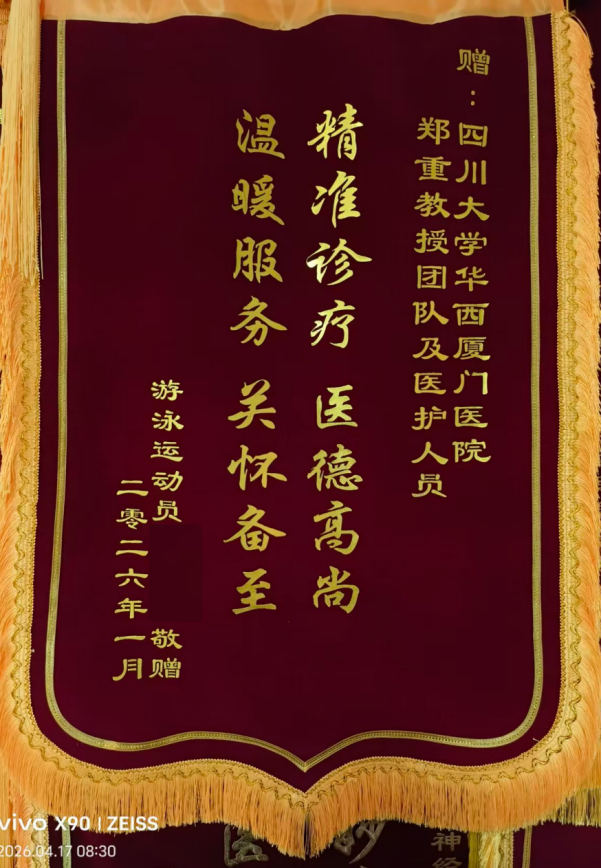 赠：四川大学华西厦门医院
郑重教授团队及医护人员
精准诊疗 医德高尚
温暖服务 关怀备至
游泳运动员 敬赠
二零二六年一月
vivo X90 | ZEISS
2026.04.17 08:30
医 妙
神经